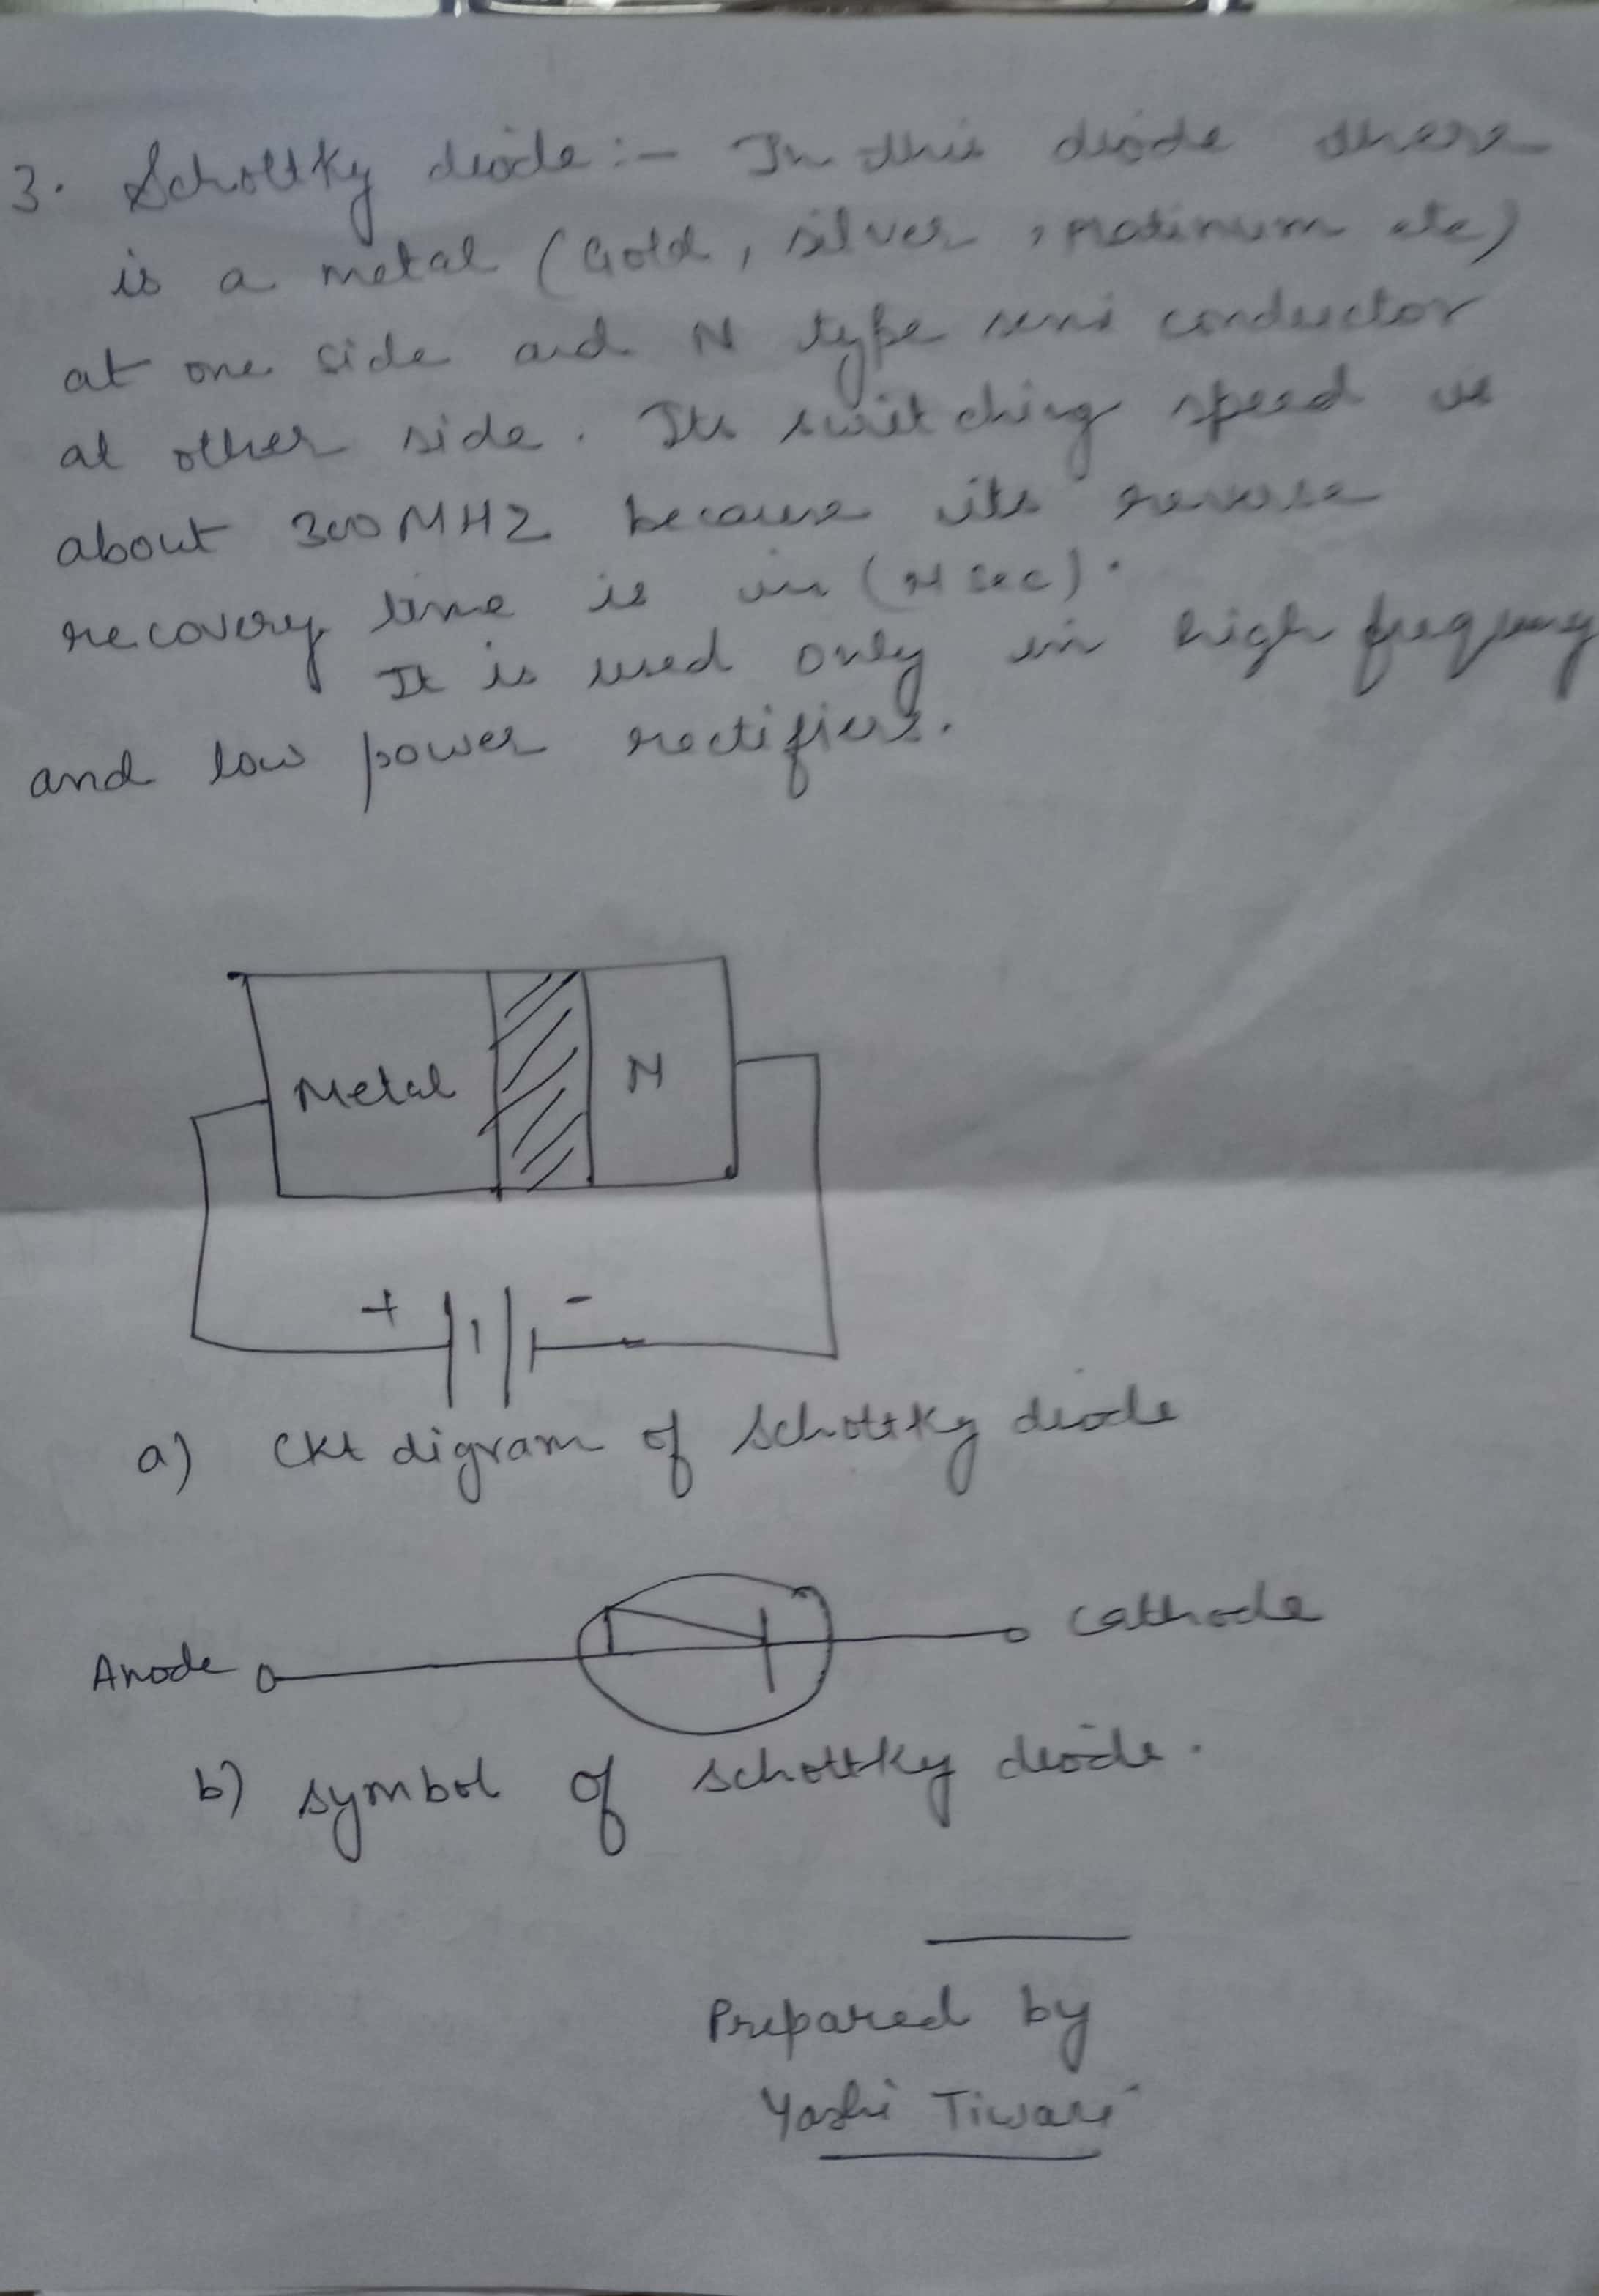 3. Schottky diode :- In this diode there
is a metal (Gold, silver, platinum etc)
at one side and N type semi conductor
at other side. Its switching speed is
about 300 MHZ because its reverse
recovery time is in (N sec).
It is used only in high frequency
and low power rectifiers.
Metal N
+ -
a) Ckt digram of Schottky diode
Anode Cathode
b) symbol of schottky diode.
Prepared by
Yashi Tiwari